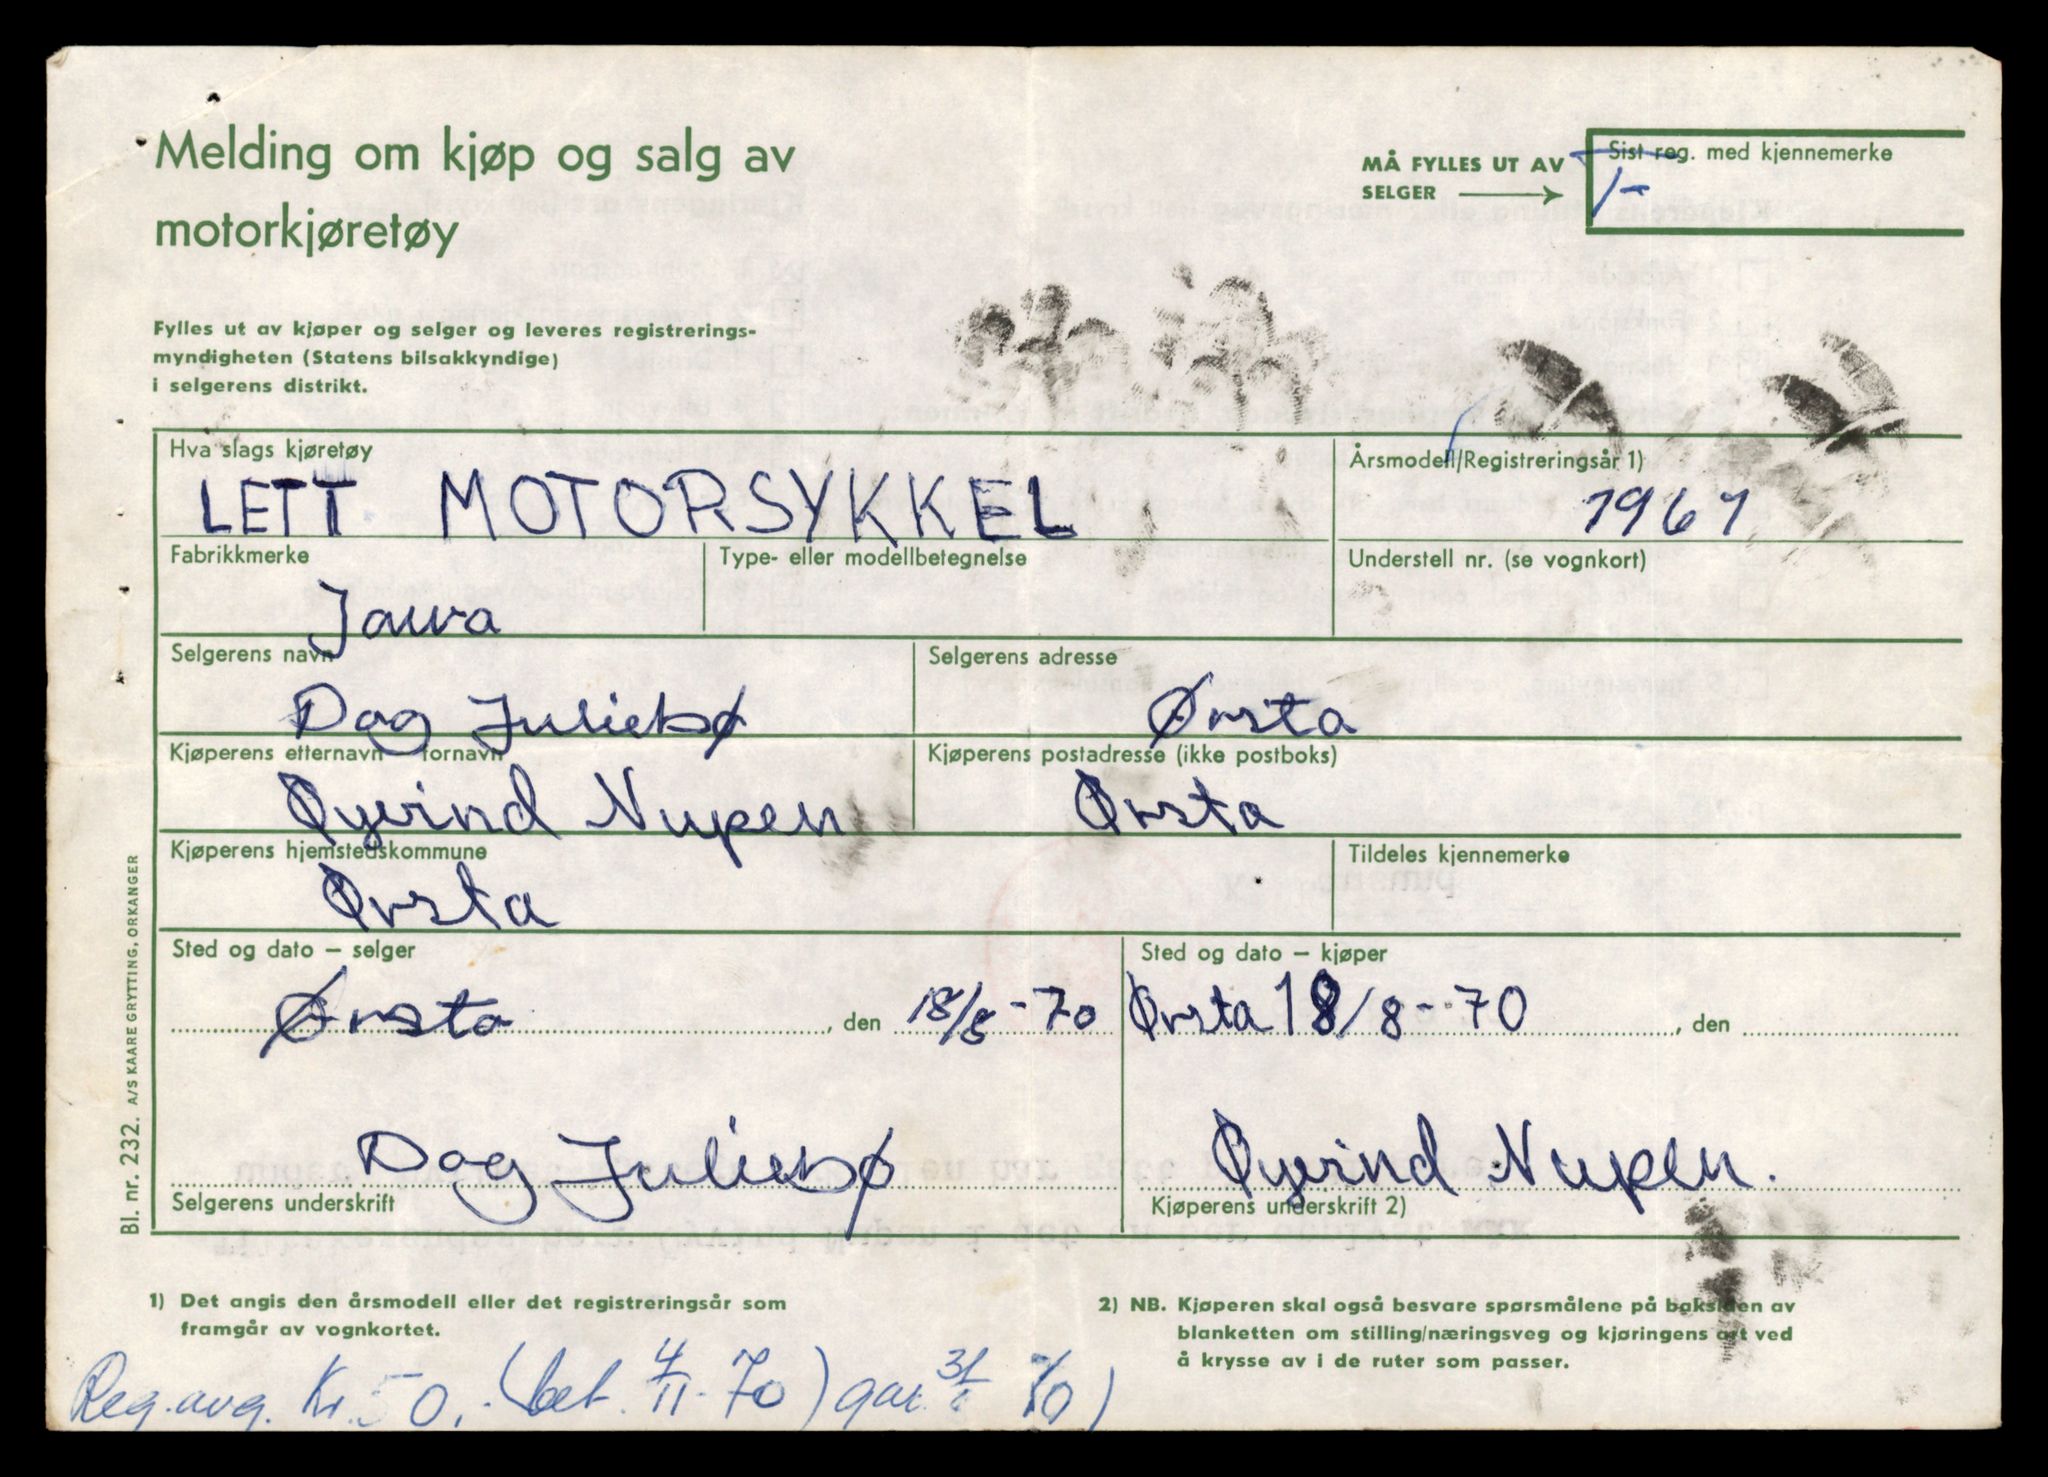 Melding om kjøp og salg av
motorkjøretøy
MÅ FYLLES UT AV
SELGER
Sist reg. med kjennemerke
Fylles ut av kjøper og selger og leveres registrerings-
myndigheten (Statens bilsakkyndige)
i selgerens distrikt.
Hva slags kjøretøy
LETT MOTORSYKKEL
Årsmodell/Registreringsår 1)
1961
Fabrikkmerke
Jawa
Type- eller modellbetegnelse
Understell nr. (se vognkort)
Selgerens navn
Dag Juliebø
Selgerens adresse
Ørsta
Kjøperens etternavn fornavn
Øyvind Nupen
Kjøperens postadresse (ikke postboks)
Ørsta
Kjøperens hjemstedskommune
Ørsta
Tildeles kjennemerke
Sted og dato – selger
Ørsta, den 18/8-70
Sted og dato – kjøper
Ørsta 18/8-70, den
Dag Juliebø
Selgerens underskrift
Øyvind Nupen.
Kjøperens underskrift 2)
Bl. nr. 232. A/S KAARE GRYTTING, ORKANGER
1) Det angis den årsmodell eller det registreringsår som
framgår av vognkortet.
2) NB. Kjøperen skal også besvare spørsmålene på baksiden av
blanketten om stilling/næringsveg og kjøringens art ved
å krysse av i de ruter som passer.
Reg.avg. Kr. 50,- (bet. 4/11-70)